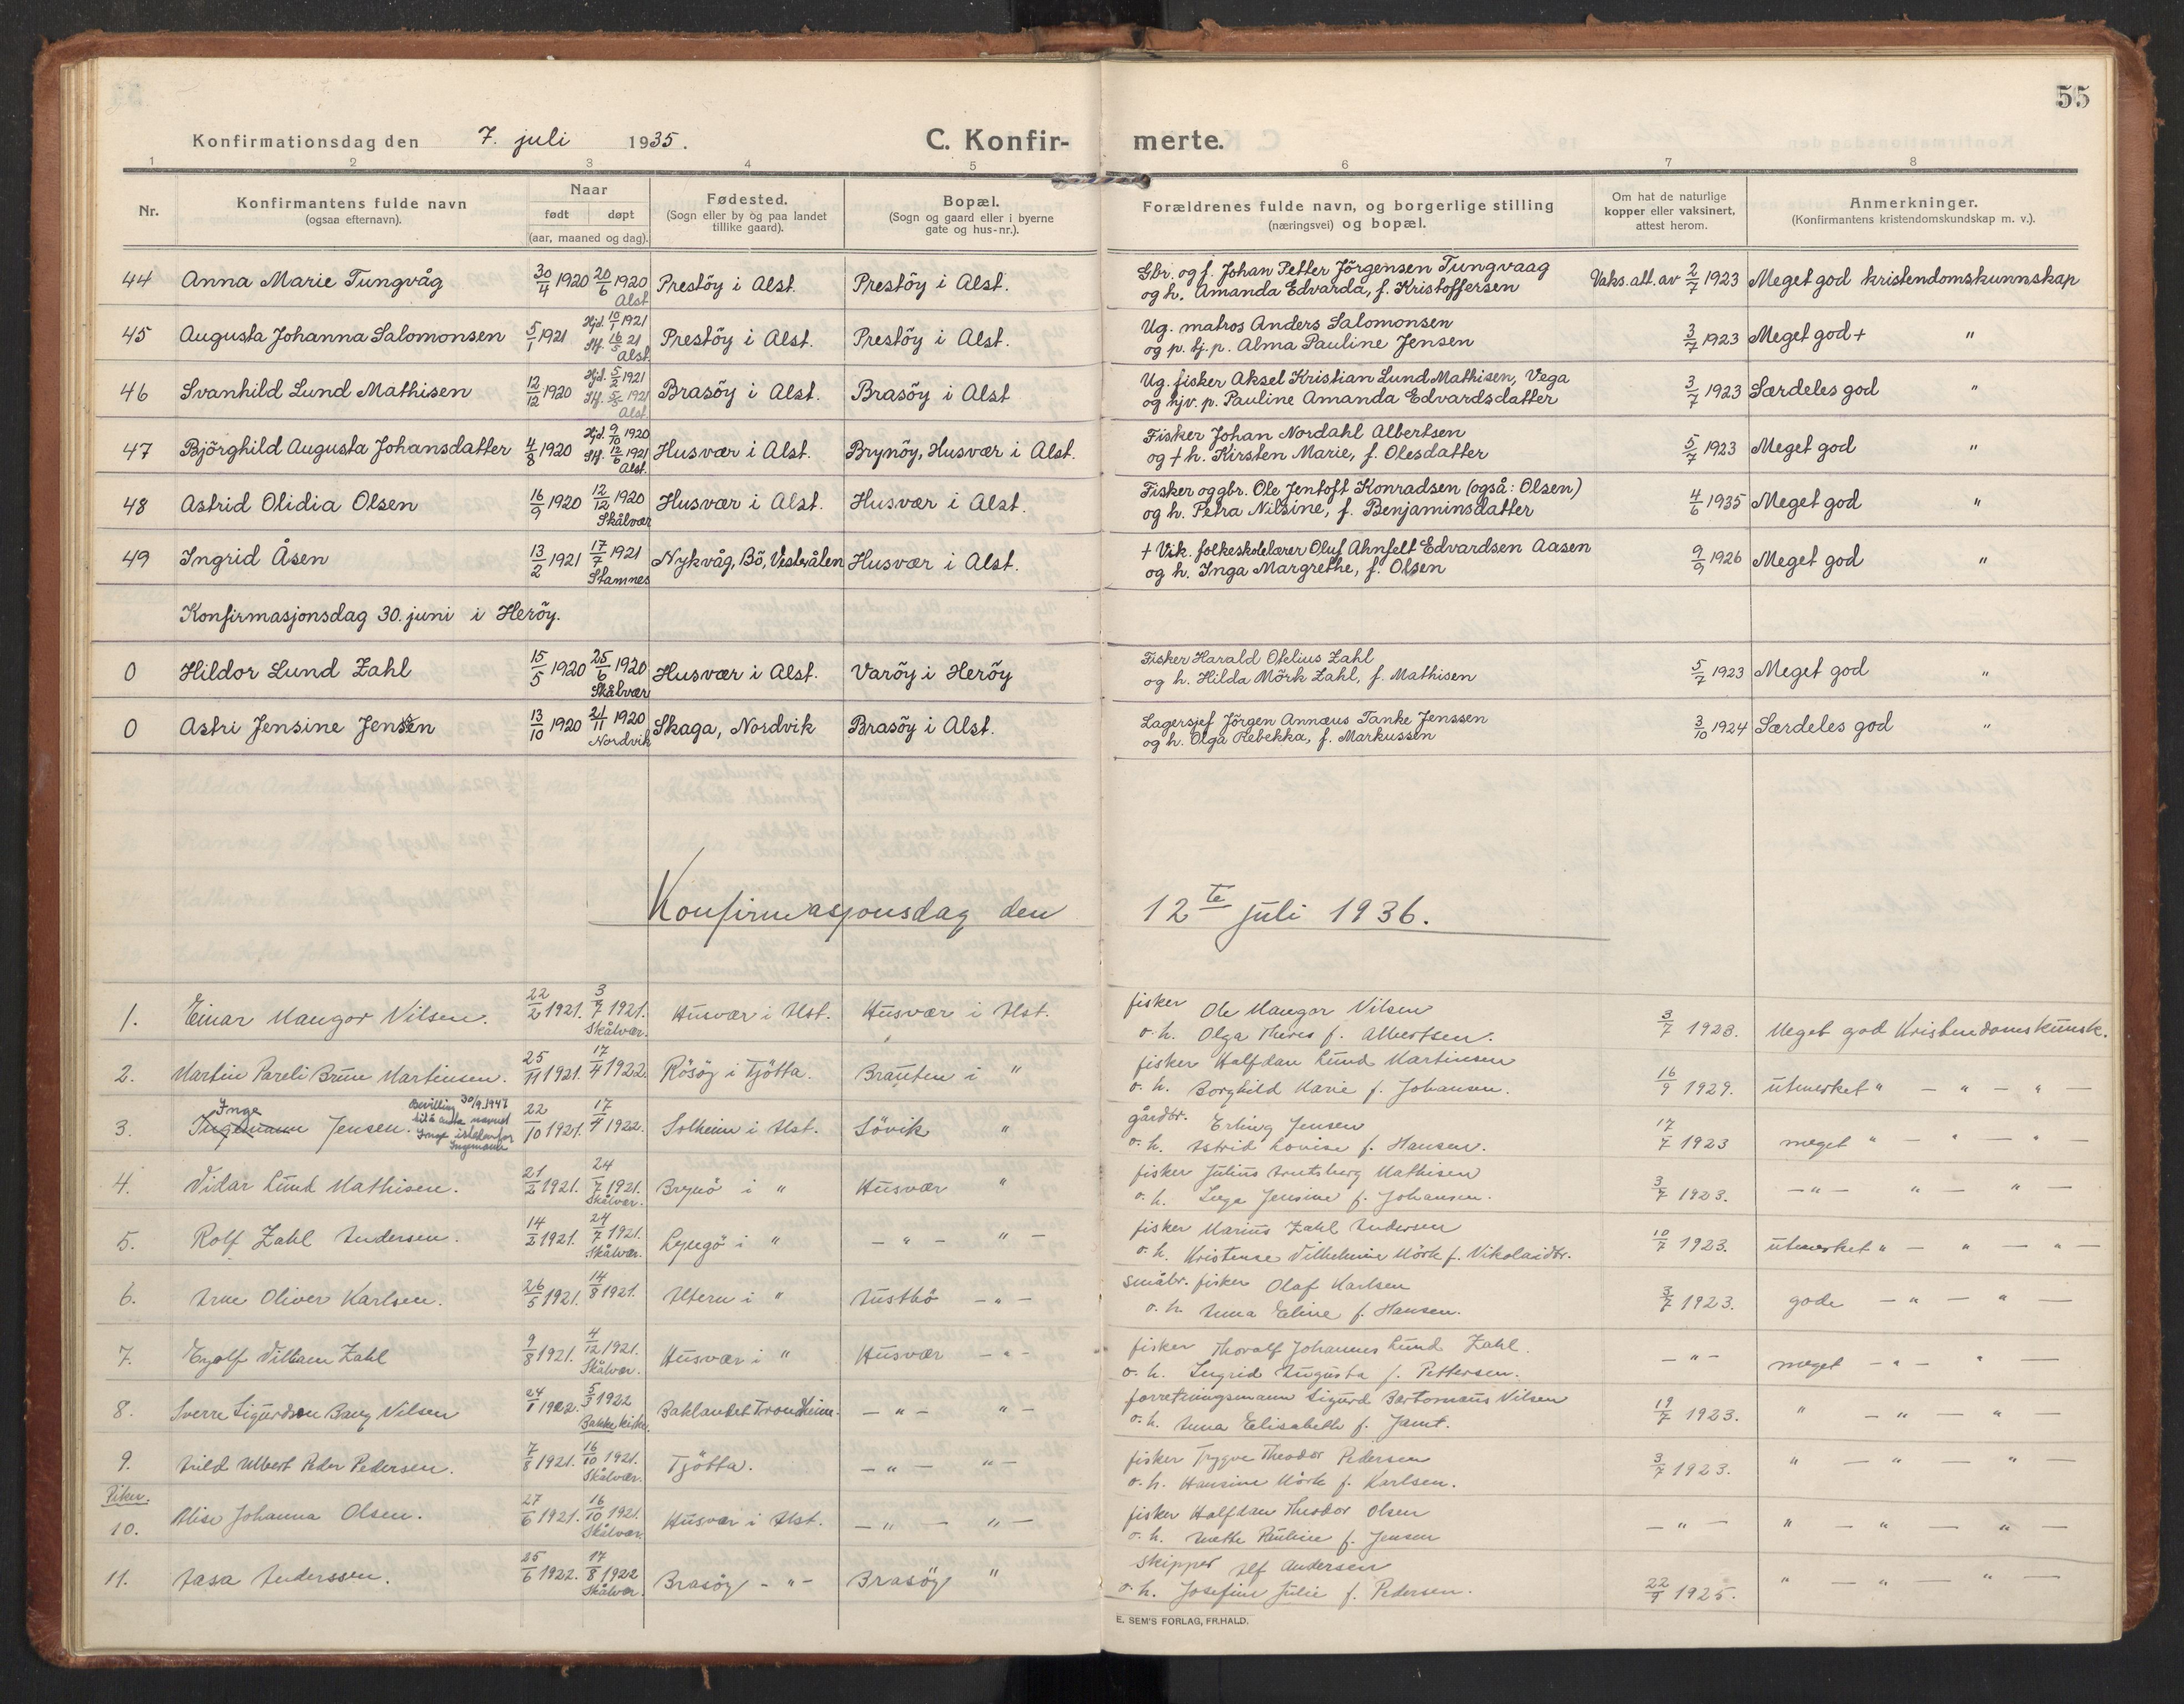 55
Konfirmationsdag den 7. juli 1935. C. Konfirmerte.
1 2 3 4 5 6 7 8
Nr. Konfirmantens fulde navn (ogsaa efternavn). Naar født døpt (aar, maaned og dag). Fødested. (Sogn eller by og paa landet tillike gaard). Bopæl. (Sogn og gaard eller i byerne gate og hus-nr.). Forældrenes fulde navn, og borgerlige stilling (næringsvei) og bopæl. Om hat de naturlige kopper eller vaksinert, attest herom. Anmerkninger. (Konfirmantens kristendomskundskap m. v.).
44 Anna Marie Tungvåg 30/4 1920 20/6 1920 Alst. Prestöy i Alst. Prestöy i Alst. Gbr. og f. Johan Petter Jörgensen Tungvaag
og h. Amanda Edvarda, f. Kristoffersen Vaks. att. av 2/7 1923 Meget god kristendomskunnskap
45 Augusta Johanna Salomonsen 5/1 1921 Hjd. 10/1 1921 Stf. 16/5 21 Alst. Prestöy i Alst. Prestöy i Alst. Ug. matros Anders Salomonsen
og p. tj.p. Alma Pauline Jensen 3/7 1923 Meget god + "
46 Svanhild Lund Mathisen 12/12 1920 Hjd. 5/2 1921 Stf. 1921 Alst. Brasöy i Alst. Brasöy i Alst Ug. fisker Aksel Kristian Lund Mathisen, Vega
og hjv. p. Pauline Amanda Edvardsdatter 3/7 1923 Særdeles god "
47 Björghild Augusta Johansdatter 4/8 1920 Hjd. 9/10 1920 Stf. 12/6 1921 Alst. Husvær i Alst. Brynöy, Husvær i Alst. Fisker Johan Nordahl Albertsen
og + h. Kirsten Marie, f. Olesdatter 5/7 1923 Meget god "
48 Astrid Olidia Olsen 16/9 1920 12/12 1920 Skålvær Husvær i Alst. Husvær i Alst. Fisker og gbr. Ole Jentoft Konradsen (også: Olsen)
og h. Petra Nilsine, f. Benjaminsdatter 4/6 1935 Meget god "
49 Ingrid Åsen 13/2 1921 17/7 1921 Stamnes Nykvåg, Bö, Vesterålen Husvær i Alst. + Vik. folkeskolelærer Oluf Ahnfelt Edvardsen Aasen
og h. Inga Margrethe, f. Olsen 9/9 1926 Meget god "
Konfirmasjonsdag 30. juni i Heröy.
0 Hildor Lund Zahl 15/5 1920 25/6 1920 Skålvær Husvær i Alst. Varöy i Heröy Fisker Harald Otelius Zahl
og h. Hilda Mörk Zahl, f. Mathisen 5/7 1923 Meget god "
0 Astri Jensine Jenssen 13/10 1920 21/11 1920 Nordvik Skaga, Nordvik Brasöy i Alst. Lagersjef Jörgen Annæus Tanke Jenssen
og h. Olga Rebekka, f. Markussen 3/10 1924 Særdeles god "
Konfirmasjonsdag den 12te juli 1936.
1. Einar Mangor Nilsen. 22/2 1921. 3/7 1921. Skålvær. Husvær i Alst. Husvær i Alst. fisker Ole Mangor Nilsen
o. h. Olga Theres f. Albertsen. 3/7 1923. Meget god Kristendomskunsk.
2. Martin Pareli Brun Martinsen. 25/11 1921. 17/4 1922. Rösöy i Tjötta. Brauten i " fisker Halfdan Lund Martinsen
o. h. Borghild Marie f. Johansen. 16/9 1929. utmerket " — " — " —
3. Ingemann Inge Jensen. Bevilling 30/9.1947 til å anta navnet Inge istedenfor Ingemann 22/10 1921. 17/4 1922. Solheim i Alst. Sövik " gårdbr. Erling Jensen
o. h. Astrid Lovise f. Hansen. 17/7 1923 meget " — " — " —
4. Vidar Lund Mathisen. 21/2 1921. 24/7 1921. Skålvær. Brynö i " Husvær " fisker Julius Arntsberg Mathisen
o. h. Inga Jensine f. Johansen. 3/7 1923. — " — " — " —
5. Rolf Zahl Andersen. 14/2 1921. 24/7 1921. Skålvær. Lyngö i " — " — " — fisker Marius Zahl Andersen
o. h. Kristense Vilhelmine Mörk f. Nikolaidtr. 10/7 1923. utmerket " — " — " —
6. Arne Oliver Karlsen. 26/5 1921. 14/8 1921. Altern i " Austbö — " — småbr. fisker Olaf Karlsen
o. h. Anna Eline f. Hansen. 3/7 1923. gode — " — " —
7. Eyolf Villiam Zahl 9/8 1921. 4/12 1921. Skålvær. Husvær i " Husvær — " — fisker Thoralf Johannes Lund Zahl.
o. h. Ingrid Augusta f. Pettersen. — " — meget — " — " —
8. Sverre Sigurdson Bang Nilsen 24/1 1922. 5/3 1922 Bakke kirke. Baklandet Trondheim. — " — " — forretningsmann Sigurd Bartomæus Nilsen
o. h. Anna Elisabeth f. Jamt. 19/7 1923. " — " — " —
9. Arild Albert Peder Pedersen. 7/8 1921. 16/10 1921. Skålvær. Tjötta. — " — " — fisker Trygve Theodor Pedersen
o. h. Hansine Mörk f. Karlsen. 3/7 1923. " — " — " —
Piker.
10. Alise Johanna Olsen. 27/6 1921. 16/10 1921. Skålvær Husvær i Alst. — " — " — fisker Halfdan Theodor Olsen
o. h. Anette Pauline f. Jensen — " — " — " — " —
11. Aasa Anderssen. 25/6 1922. 17/8 1922 Skålvær. Brasöy — " — Brasöy " skipper Alf Andersen
o. h. Josefine Julie f. Pedersen. 22/9 1925. " — " — " —
E. SEM'S FORLAG, FR.HALD.